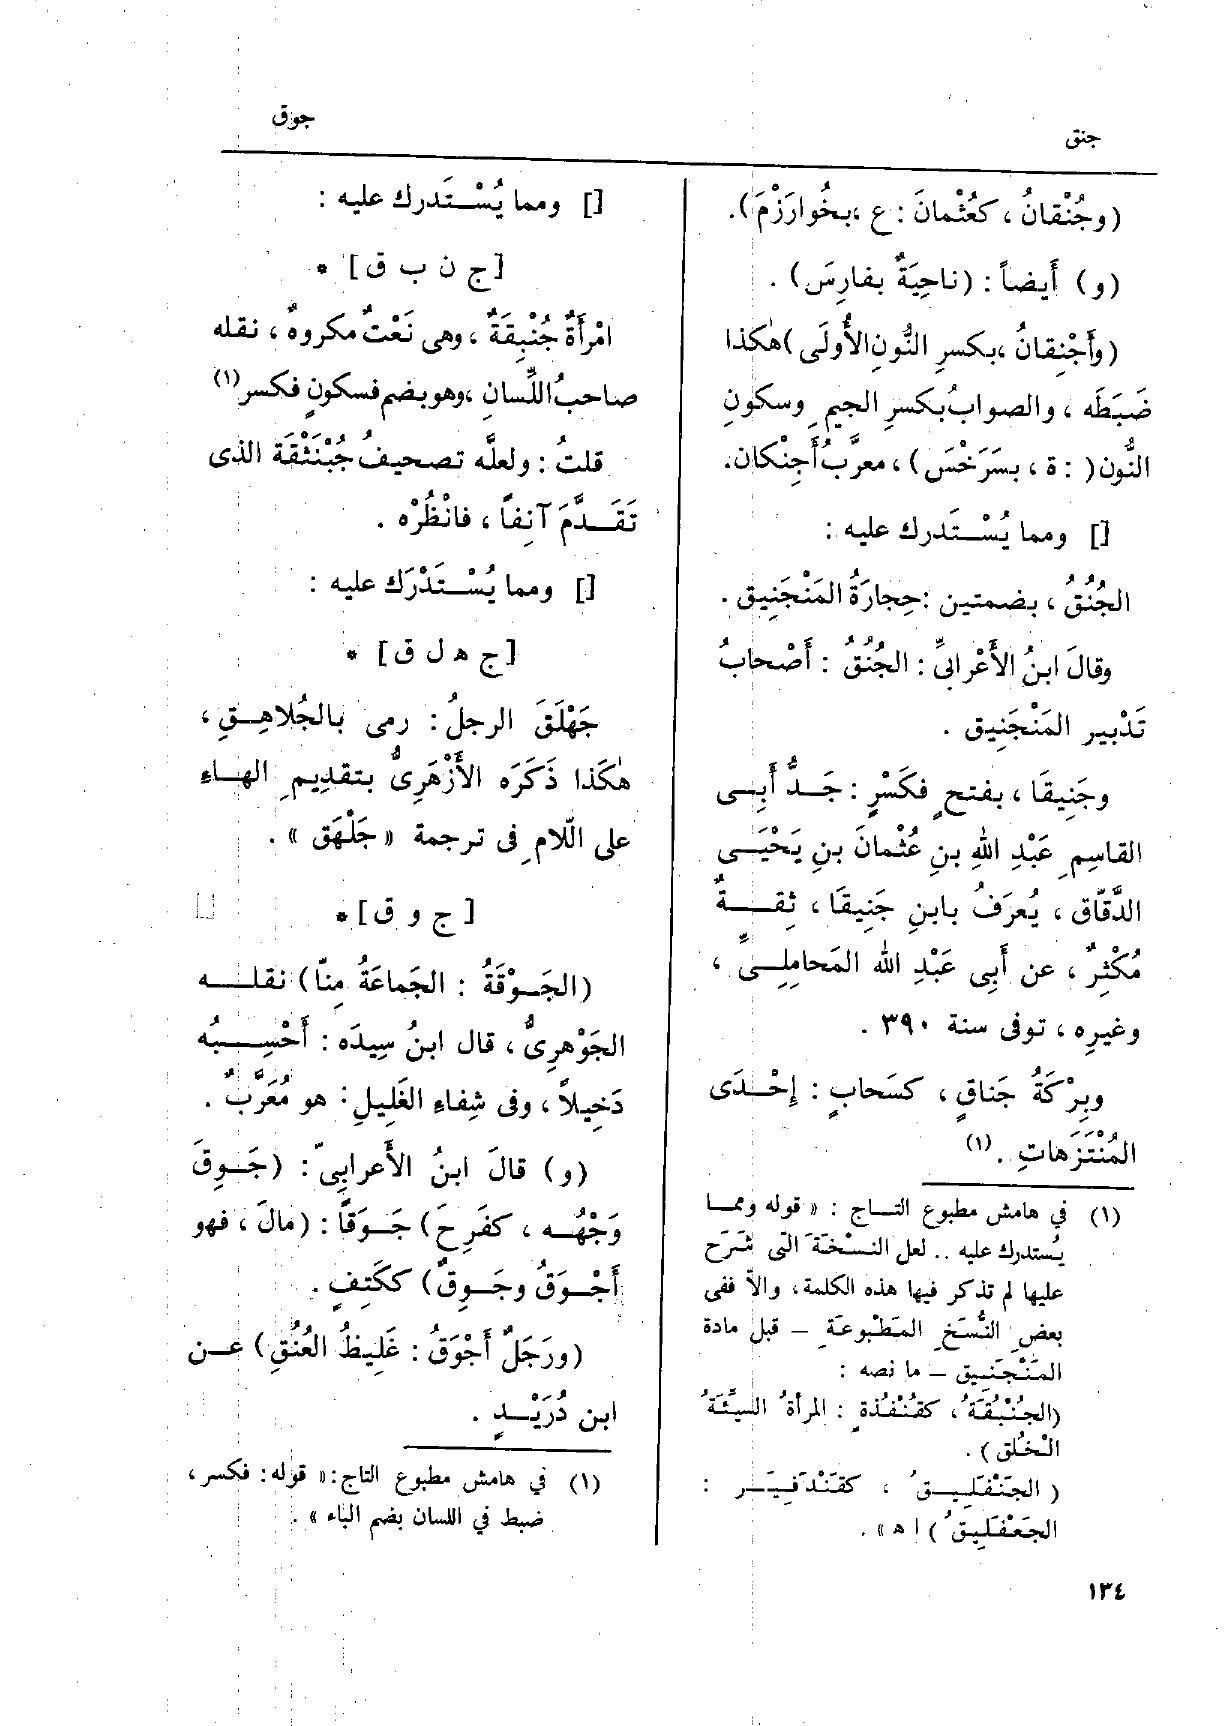 جنق
جوق
(وجُنْقانُ ، كعُثْمانَ : ع ، بخُوارَزْمَ).
(و) أَيضاً : (ناحِيَةٌ بفارِسَ) .
(وأَجْنِقانُ ، بكسرِ النُّونِ الأُولَى) هٰكذا
ضَبَطَه ، والصوابُ بكسرِ الجيمِ وسكونِ
النُّون ( : ة ، بسَرَخْسَ) ، معرَّبُ أَجِنْكان.
[] ومما يُسْتَدرك عليه :
الجُنُقُ ، بضمتين : حِجارَةُ المَنْجَنِيق .
وقالَ ابنُ الأَعْرابيِّ : الجُنُقُ : أَصْحابُ
تَدْبيرِ المَنْجَنِيق .
وجَنِيقَا ، بفتحٍ فكَسْرٍ : جَدُّ أَبِى
القاسِمِ عَبْدِ اللهِ بنِ عُثْمانَ بنِ يَحْيَى
الدَّقّاق ، يُعرَفُ بابنِ جَنِيقَا ، ثِقَةٌ
مُكْثِرٌ ، عن أَبى عَبْدِ الله المَحامِلِىِّ ،
وغيرِه ، توفى سنة ٣٩٠ .
وبِرْكَةُ جَناقٍ ، كسَحابٍ : إِحْدَى
المُنْتَزَهاتِ . (١)
(١) في هامش مطبوع التاج : « قوله ومما
يُستدرك عليه .. لعل النسْخَةَ التي شَرَح
عليها لم تذكر فيها هذه الكلمة، والاّ ففى
بعضِ النُّسَخِ المَطْبوعَةِ – قبل مادة
المَنْجَنيق – ما نصه :
(الجُنْبُقَةُ ، كقُنْفُذةٍ : المرأةُ السيِّئَةُ
الخُلق) .
( الجَنْفَلِيقُ ، كقَنْدَفِيَر :
الجَعْفَلِيقُ ) ا ه » .
[] ومما يُسْتَدرك عليه :
[ ج ن ب ق ] *
امْرأَةٌ جُنْبِقَةٌ ، وهى نَعْتٌ مكروهٌ ، نقله
صاحبُ اللِّسانِ ، وهو بضم فسكونٍ فكسر (١)
قلتُ : ولعلَّه تصحيفُ جُبْنَثْقَة الذى
تَقَدَّمَ آنِفاً ، فانْظُرْه .
[] ومما يُسْتَدْرَك عليه :
[ ج ه ل ق ] *
جَهْلَقَ الرجلُ : رمى بالجُلاهِقِ ،
هٰكَذا ذَكَرَه الأَزْهَرِىُّ بتقديمِ الهاءِ
على اللّامِ فى ترجمة « جَلْهَق » .
[ ج و ق ] *
(الجَوْقَةُ : الجَماعَةُ مِنّا) نقله
الجَوْهرِىُّ ، قال ابنُ سِيدَه : أَحْسِبُه
دَخِيلاً ، وفى شِفاءِ الغَلِيلِ : هو مُعَرَّبٌ .
(و) قالَ ابنُ الأَعرابِىّ : (جَوِقَ
وَجْهُه ، كفَرِحَ) جَوَقاً : (مالَ ، فهو
أَجْوَقُ وجَوِقٌ) ككَتِفٍ .
(ورَجَلٌ أَجْوَقُ : غَلِيظُ العُنُقِ) عن
ابن دُرَيْدٍ .
(١) في هامش مطبوع التاج : « قوله : فكسر ،
ضبط في اللسان بضم الباء » .
١٣٤